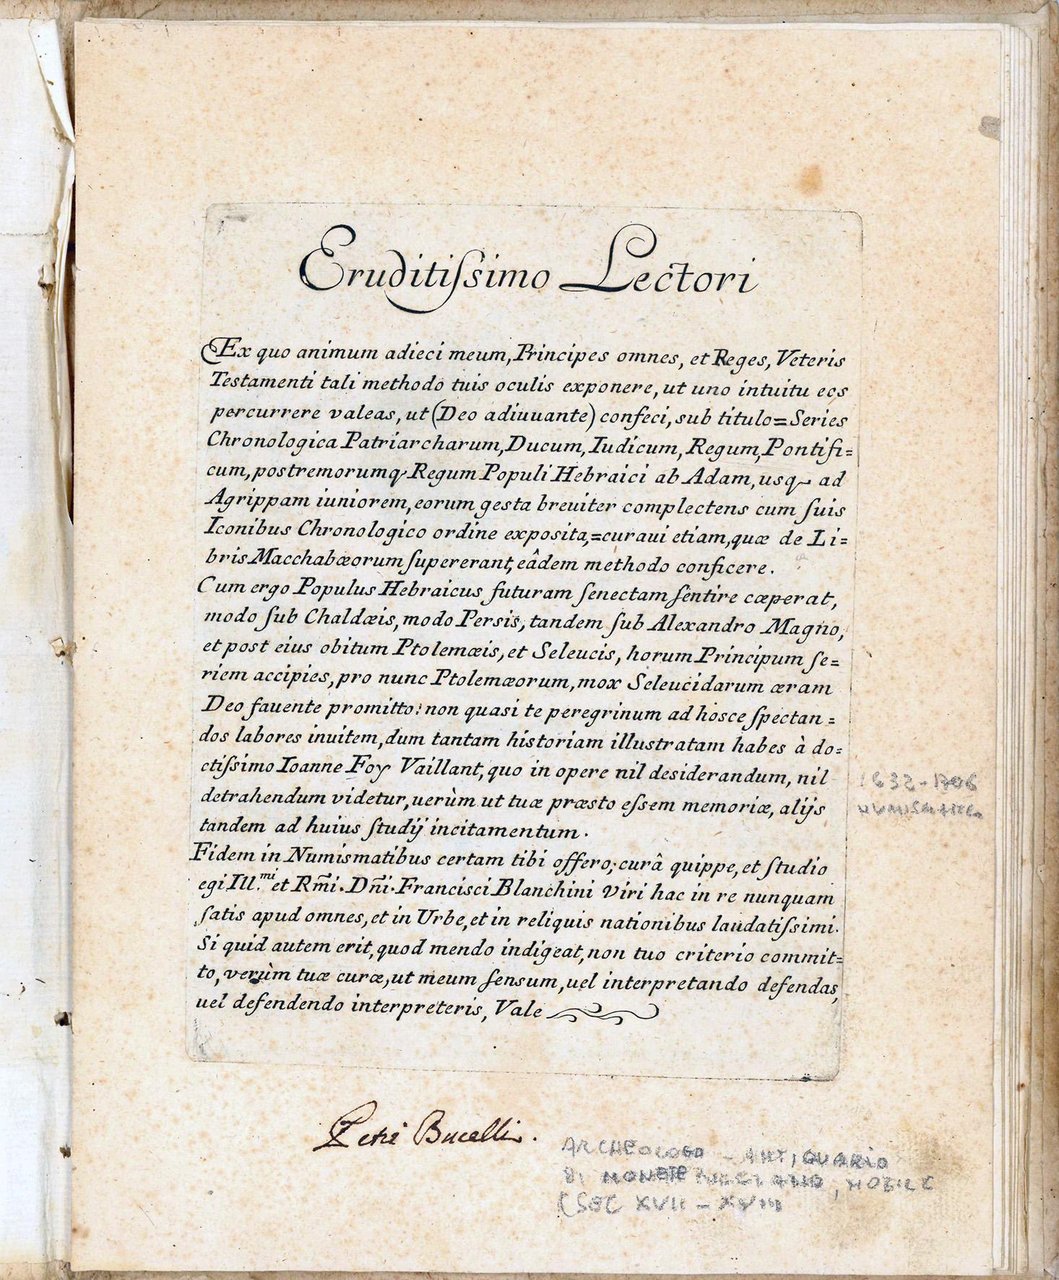 Eruditiſsimo Lectori
Ex quo animum adieci meum, Principes omnes, et Reges, Veteris
Testamenti tali methodo tuis oculis exponere, ut uno intuitu eos
percurrere valeas, ut (Deo adiuuante) confeci, sub titulo=Series
Chronologica Patriarcharum, Ducum, Iudicum, Regum, Pontifi=
cum, postremorumq Regum Populi Hebraici ab Adam, usq ad
Agrippam iuniorem, eorum gesta breuiter complectens cum ſuis
Iconibus Chronologico ordine exposita,=curaui etiam, quæ de Li=
bris Macchabæorum ſupererant, eâdem methodo conficere.
Cum ergo Populus Hebraicus futuram ſenectam ſentire cœperat,
modo ſub Chaldæis, modo Persis, tandem ſub Alexandro Magno,
et post eius obitum Ptolemæis, et Seleucis, horum Principum ſe=
riem accipies, pro nunc Ptolemæorum, mox Seleucidarum æram
Deo fauente promitto: non quasi te peregrinum ad hosce ſpectan=
dos labores inuitem, dum tantam historiam illustratam habes à do=
ctiſsimo Ioanne Foy Vaillant, quo in opere nil desiderandum, nil
detrahendum videtur, uerùm ut tuæ præsto eſsem memoriæ, alijs
tandem ad huius ſtudij incitamentum.
Fidem in Numismatibus certam tibi offero; curâ quippe, et ſtudio
egi Ill.mi et Rm̃i. Dñi. Francisci Blanchini Viri hac in re nunquam
ſatis apud omnes, et in Urbe, et in reliquis nationibus laudatiſsimi.
Si quid autem erit, quod mendo indigeat, non tuo criterio commit=
to, verùm tuæ curæ, ut meum ſensum, uel interpretando defendas,
uel defendendo interpreteris, Vale
1632-1706
NUMISMATICO
Petri Bucelli.
ARCHEOLOGO - ANTIQUARIO
DI MONTEPULCIANO, NOBILE
(SEC XVII - XVIII